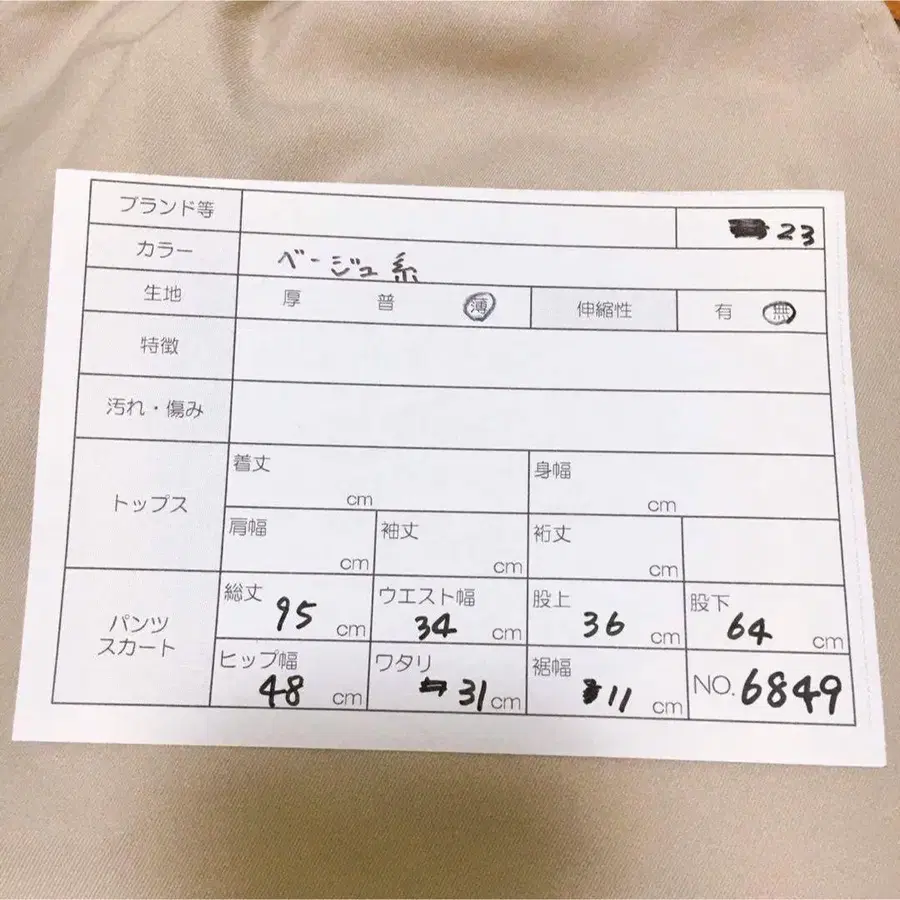 ブランド等 23
カラー ベージュ系
生地 厚 普 薄 伸縮性 有 無
特徴
汚れ・傷み
トップス
着丈 cm 身幅 cm
肩幅 cm 袖丈 cm 裄丈 cm
パンツ
スカート
総丈 95 cm ウエスト幅 34 cm 股上 36 cm 股下 64 cm
ヒップ幅 48 cm ワタリ 31 cm 裾幅 11 cm NO. 6849